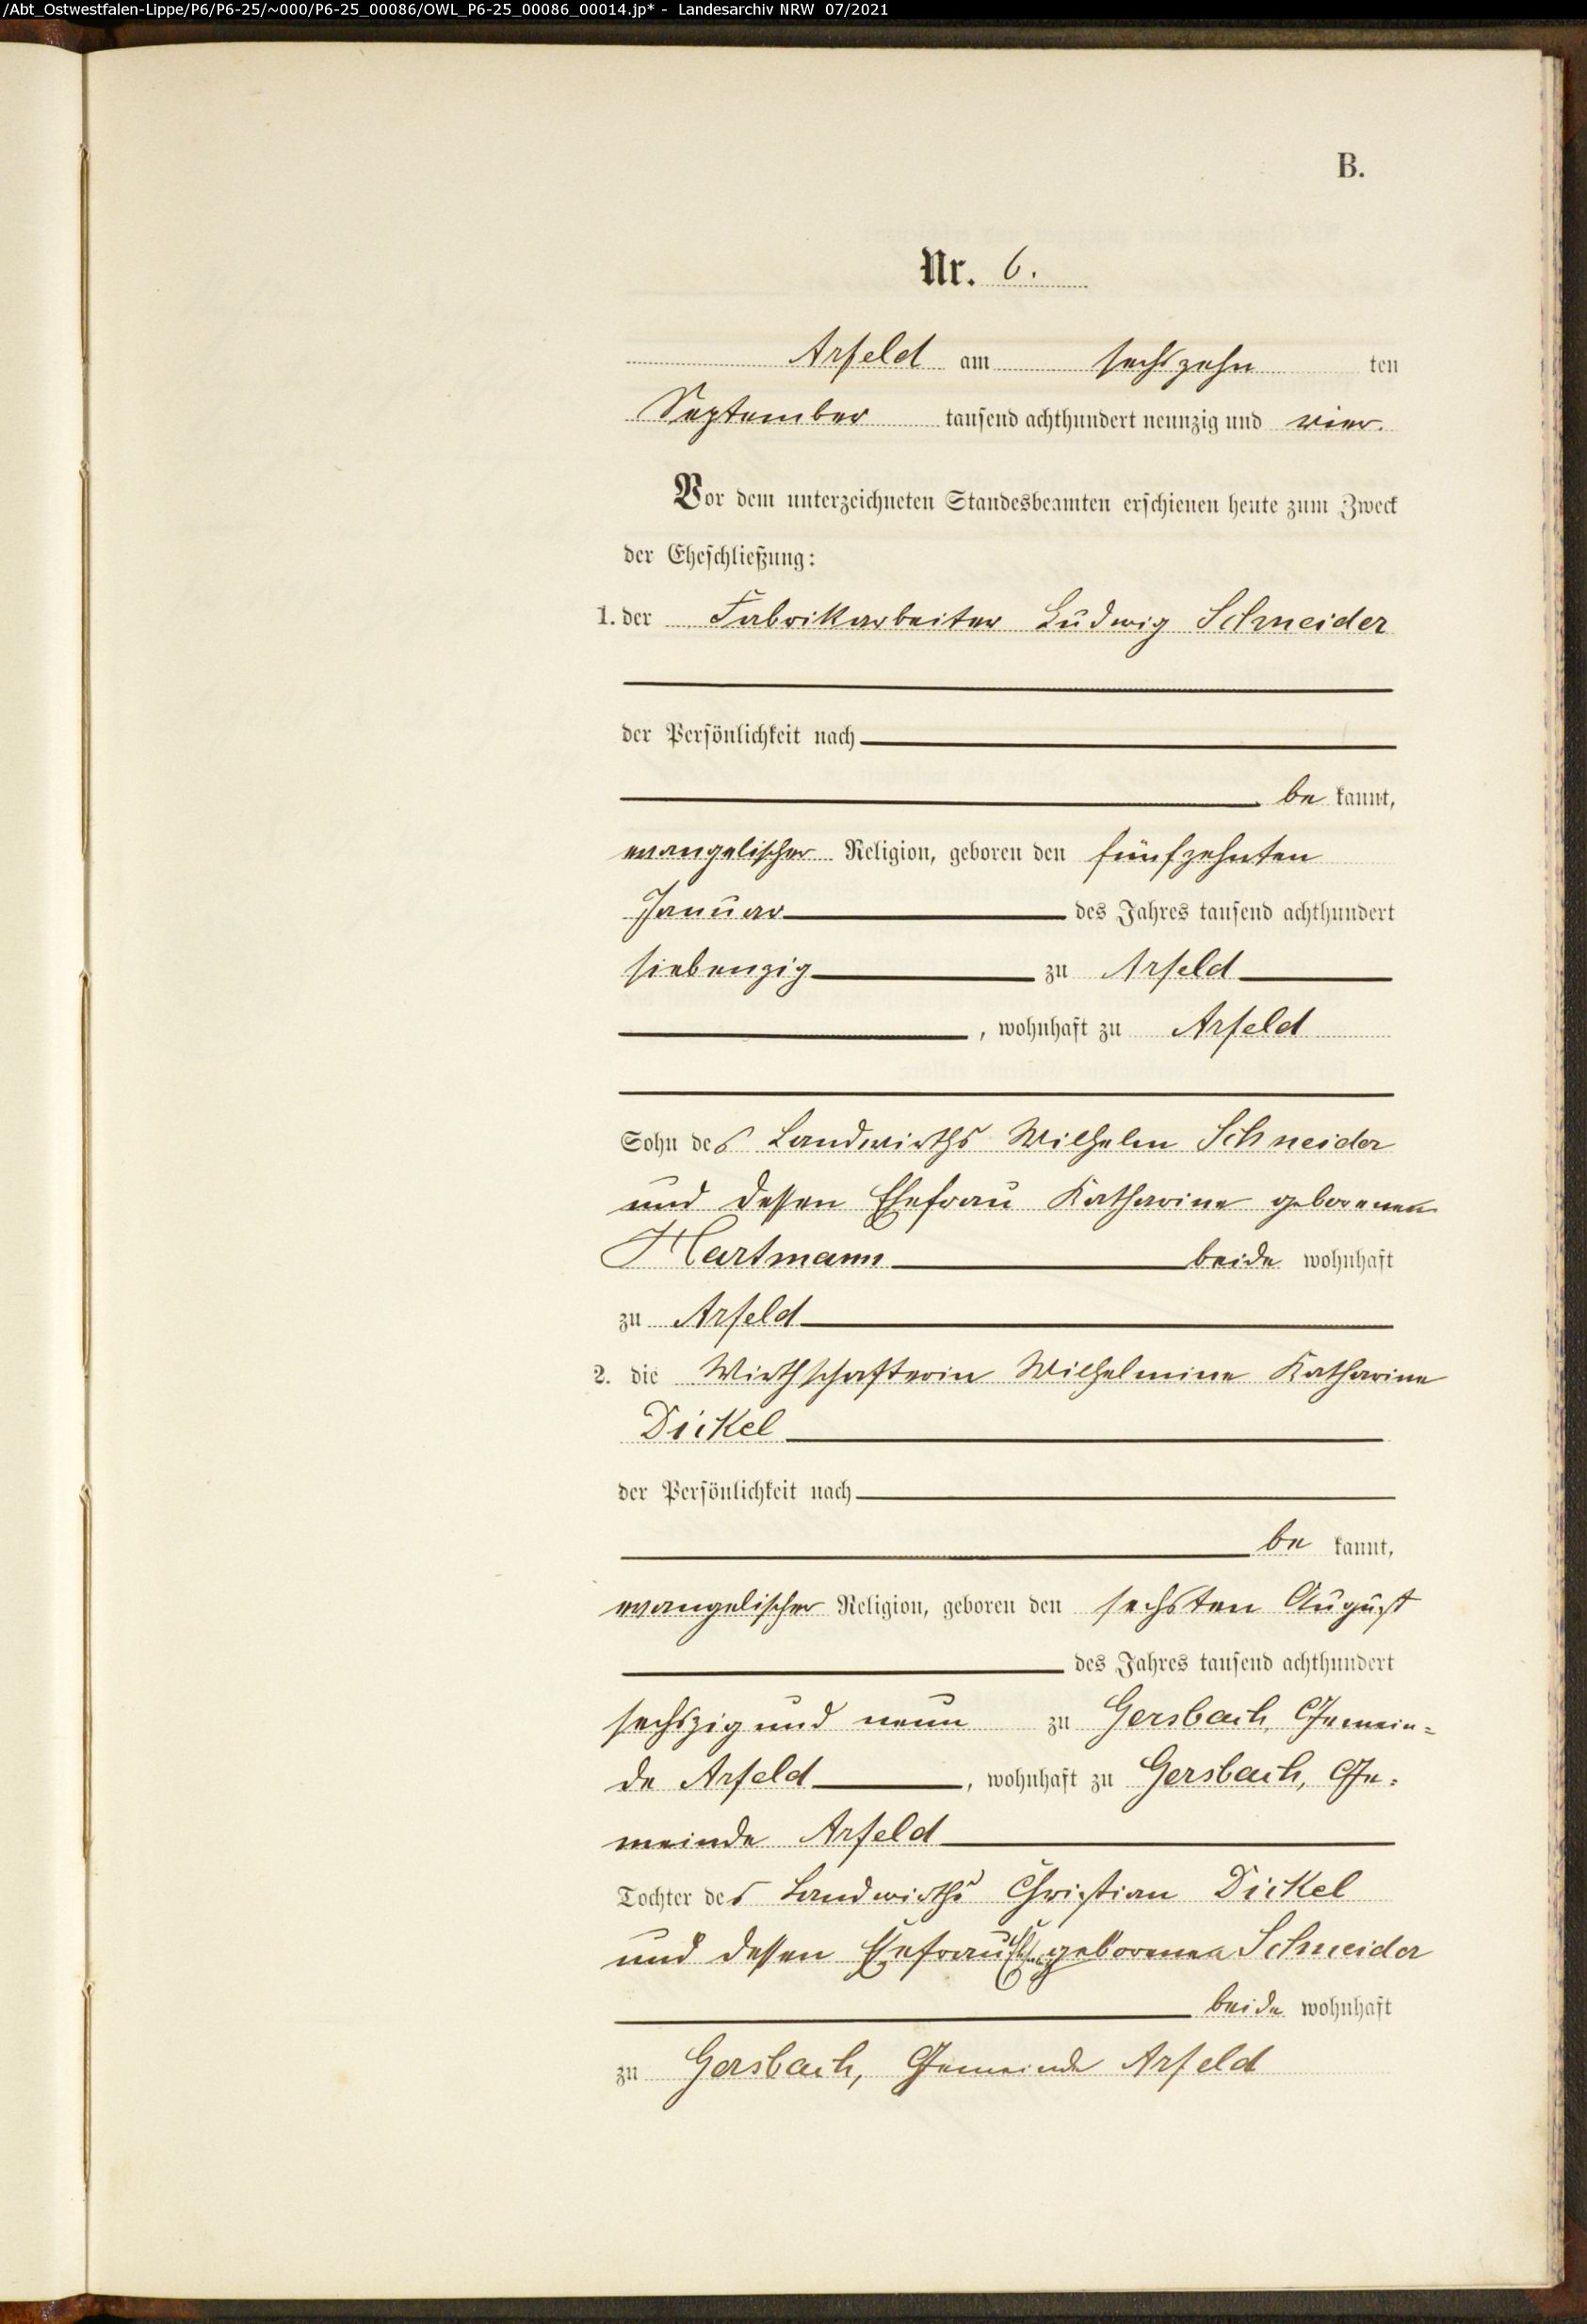 /Abt_Ostwestfalen-Lippe/P6/P6-25/~000/P6-25_00086/OWL_P6-25_00086_00014.jp* - Landesarchiv NRW 07/2021
B.
Nr. 6.
Arfeld am sechszehn ten
September tausend achthundert neunzig und vier.
Vor dem unterzeichneten Standesbeamten erschienen heute zum Zweck
der Eheschließung:
1. der Fabrikarbeiter Ludwig Schneider
der Persönlichkeit nach
be kannt,
evangelischer Religion, geboren den fünfzehnten
Januar des Jahres tausend achthundert
siebenzig zu Arfeld
, wohnhaft zu Arfeld
Sohn des Landwirths Wilhelm Schneider
und dessen Ehefrau Katharine geborenen
Hartmann beide wohnhaft
zu Arfeld
2. die Wirthschafterin Wilhelmine Katharine
Dickel
der Persönlichkeit nach
be kannt,
evangelischer Religion, geboren den sechsten August
des Jahres tausend achthundert
sechszig und neun zu Gersbach, Gemein=
de Arfeld, wohnhaft zu Gersbach, Ge=
meinde Arfeld
Tochter des Landwirths Christian Dickel
und dessen Ehefrau geborenen Schneider
beide wohnhaft
zu Gersbach, Gemeinde Arfeld